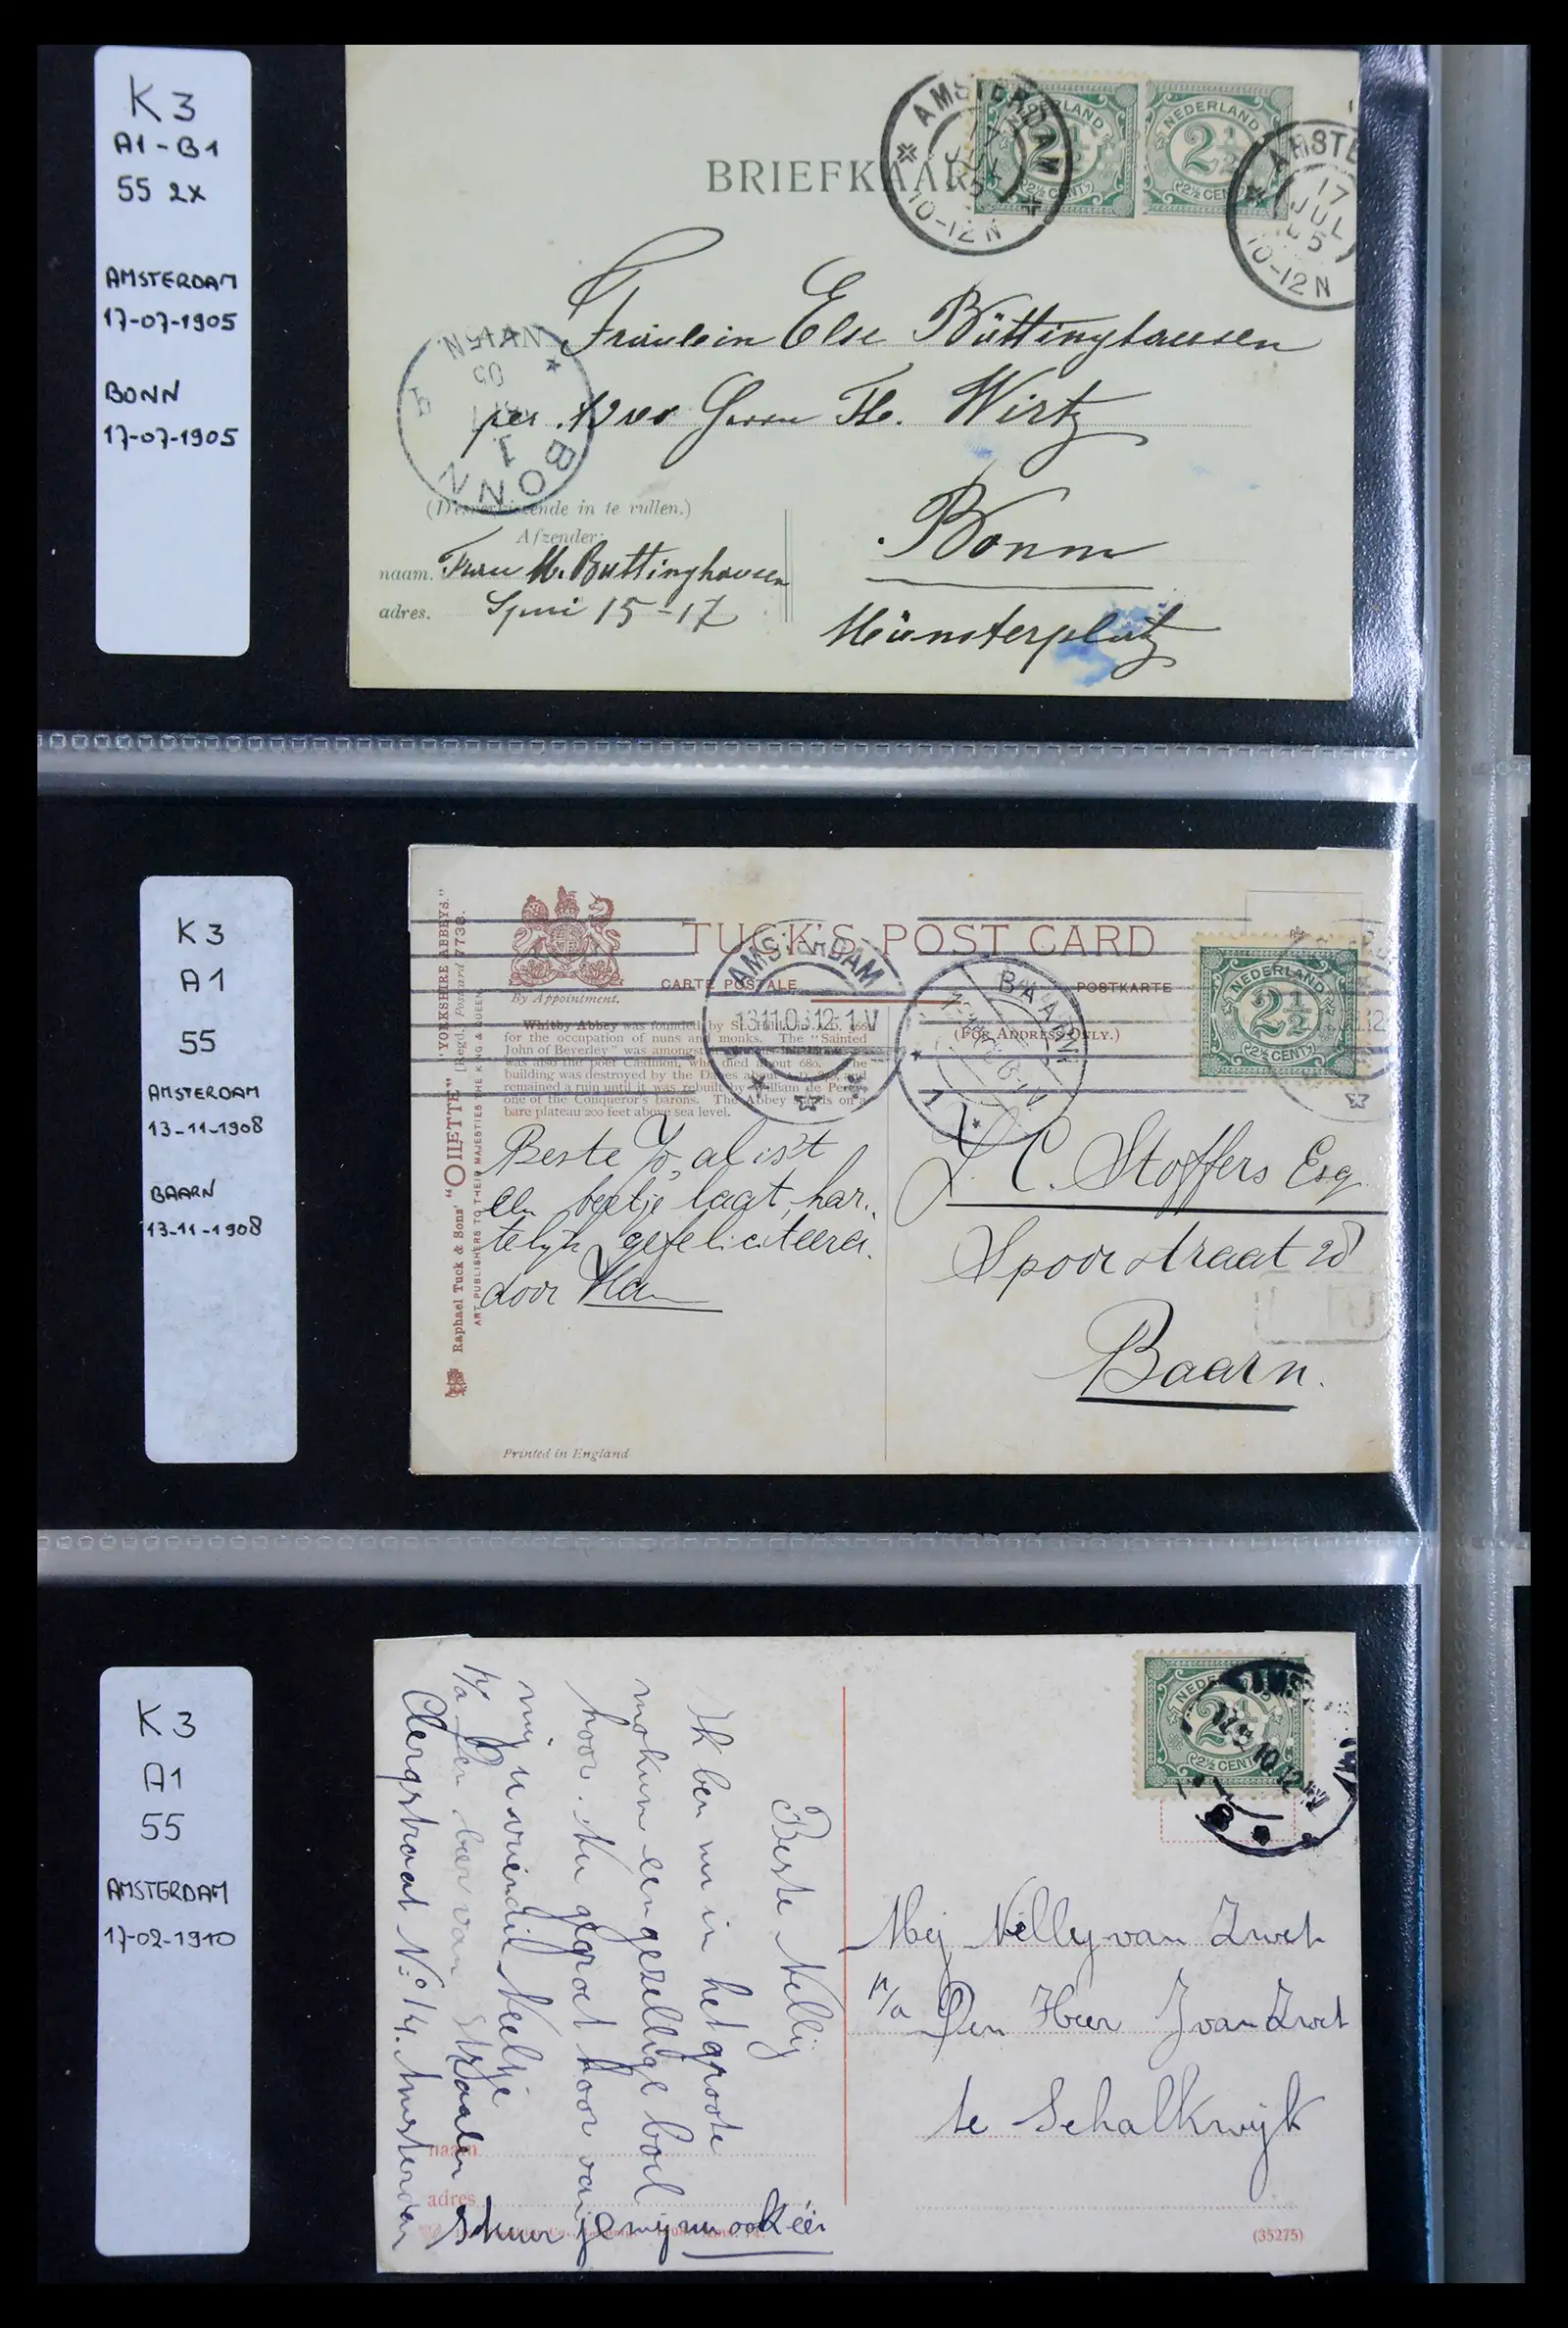 K3
A1-B1
55 2x
AMSTERDAM
17-07-1905
BONN
17-07-1905
BRIEFKAART
AMSTERDAM
10-12 N
NEDERLAND
2½
(2½ CENT)
NEDERLAND
2½
(2½ CENT)
AMSTE
17
JUL
05
10-12 N
Fräulein Else Büttinghausen
per Herrn Th. Wirtz
Bonn
Münsterplatz
BONN
1
(Desverkiezende in te vullen.)
Afzender:
naam. Frau M. Buttinghausen
adres. Spui 15-17
K3
A1
55
AMSTERDAM
13-11-1908
BAARN
13-11-1908
"YORKSHIRE ABBEYS."
Raphael Tuck & Sons' "OILETTE" [Regd.] Postcard 7738.
ART PUBLISHERS TO THEIR MAJESTIES THE KING & QUEEN.
By Appointment.
TUCK'S POST CARD
CARTE POSTALE
POSTKARTE
(FOR ADDRESS ONLY.)
AMSTERDAM
13.11.08 12-1 V
BAARN
1
NEDERLAND
2½
(2½ CENT)
Whitby Abbey was founded by St.
for the occupation of nuns and monks. The "Sainted
John of Beverley" was amongst
was also the poet Cædmon, who died about 680. The
building was destroyed by the Danes about and
remained a ruin until it was rebuilt by William de Percy,
one of the Conqueror's barons. The Abbey stands on a
bare plateau 200 feet above sea level.
Beste Jo, al is't
een beetje laat, har-
telijk gefeliciteerd.
door Han
J. C. Stoffers Esq
Spoorstraat 28
Baarn.
Printed in England
K3
A1
55
AMSTERDAM
17-02-1910
NEDERLAND
2½
(2½ CENT)
Beste Nellij
Ik ben nu in het groote
mokum een gezellige boel
hoor. Nu gegroet hoor van
mij u vriendin Neeltje
p/a Den heer van Straalen
Clercqstraat No 14. Amsterdam
Stuur je mij nu ook éér
naam
adres
Mej Nelly van Zwet
p/a Den Heer J van Zwet
te Schalkwijk
(35275)